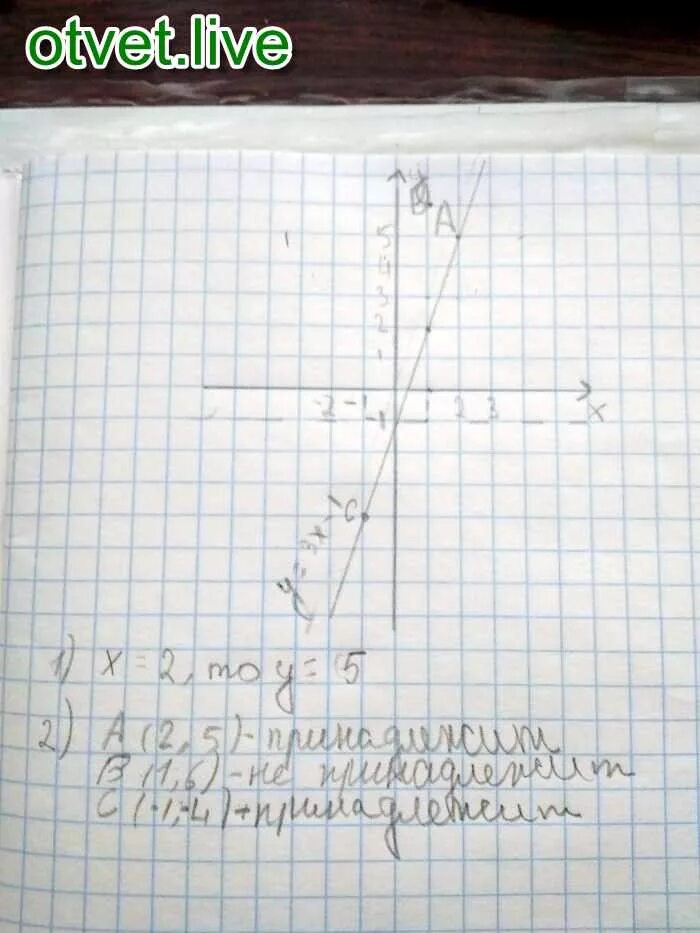 otvet.live
A
5
4
3
2
1
-2 -1 1 2 3 x
-1
C
y = 3x - 1
1) x = 2, то y = 5
2) A (2, 5) - принадлежит
B (1, 6) - не принадлежит
C (-1; -4) - принадлежит